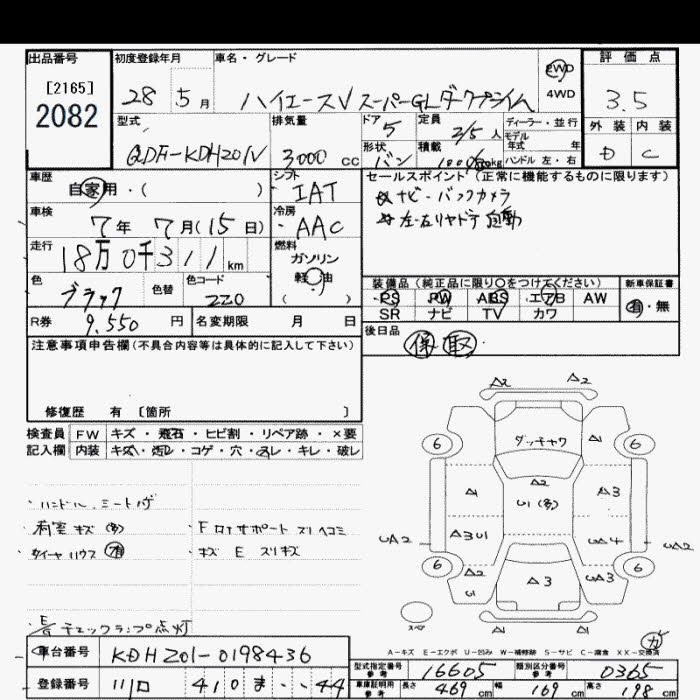 出品番号
[2165]
2082
初度登録年月
28 年 5 月
車名・グレード
ハイエースV スーパーGLダークプライム
2WD
4WD
評価点
3.5
外装 内装
D C
型式
QDF-KDH201V
排気量
3000 cc
ドア 5
形状 バン
定員 2/5 人
積載 kg
ディーラー・並行
モデル
年式 年
ハンドル 左・右
車歴
自家用・( )
シフト
IAT
車検
7年 7月(15日)
冷房
AAC
走行
18万0千311 km
燃料
ガソリン
軽油
( )
色
ブラック
色替
色コード
220
R券
9,550 円
名変期限 月 日
セールスポイント(正常に機能するものに限ります)
ナビ・バックカメラ
左・右リヤドア自動
装備品(純正品に限り○をつけてください)
新車保証書
PS PW ABS エアB AW
SR ナビ TV カワ
有・無
後日品
保 取
注意事項申告欄(不具合内容等は具体的に記入して下さい)
修復歴 有 〔箇所 〕
検査員 FW キズ・飛石・ヒビ割・リペア跡・×要
記入欄 内装 キズ・汚レ・コゲ・穴・スレ・キレ・破レ
・ハンドル、シートハゲ
・荷室キズ(多)
・タイヤハウス 有
・Fロアサポート スリヘコミ
・キズ E スリキズ
・チェックランプ点灯
A2 A2
6 6
ダッチャク
A1
A2
U1(多)
A1
A3
A3U1
UA4
UA2
UA2
6 6
A2
U1
A3
UA3
A1 A1
スペア
ガ
A-キズ E-エクボ U-凹み W-補修跡 S-サビ C-腐食 XX-交換済
車台番号
KDH201-0198436
登録番号
410 ま ・・44
型式指定番号
参考
16605
類別区分番号
参考
0365
車庫証明用
参考
長さ 469 cm 幅 169 cm 高さ 198 cm